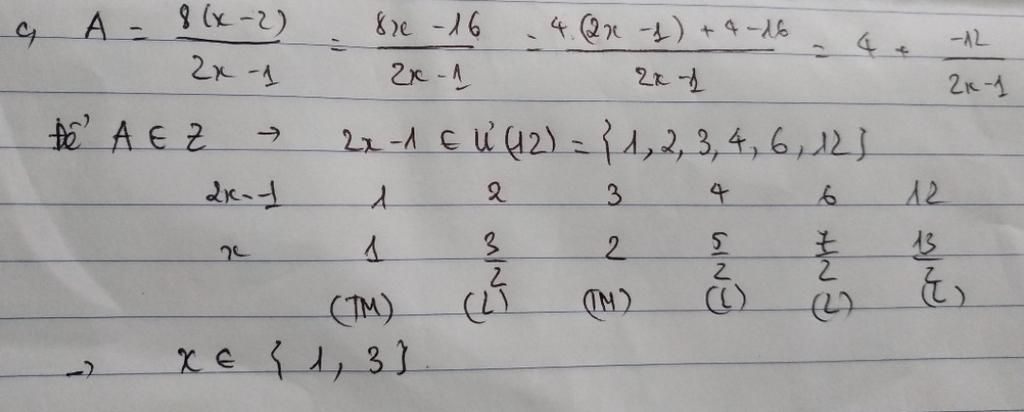 c, A = 8(x-2)/2x-1 = 8x-16/2x-1 = 4.(2x-1)+4-16/2x-1 = 4 + -12/2x-1
Để A ∈ Z → 2x-1 ∈ Ư(12) = {1, 2, 3, 4, 6, 12}
2x-1 1 2 3 4 6 12
x 1 3/2 2 5/2 7/2 13/2
(TM) (L) (TM) (L) (L) (L)
→ x ∈ {1, 3}